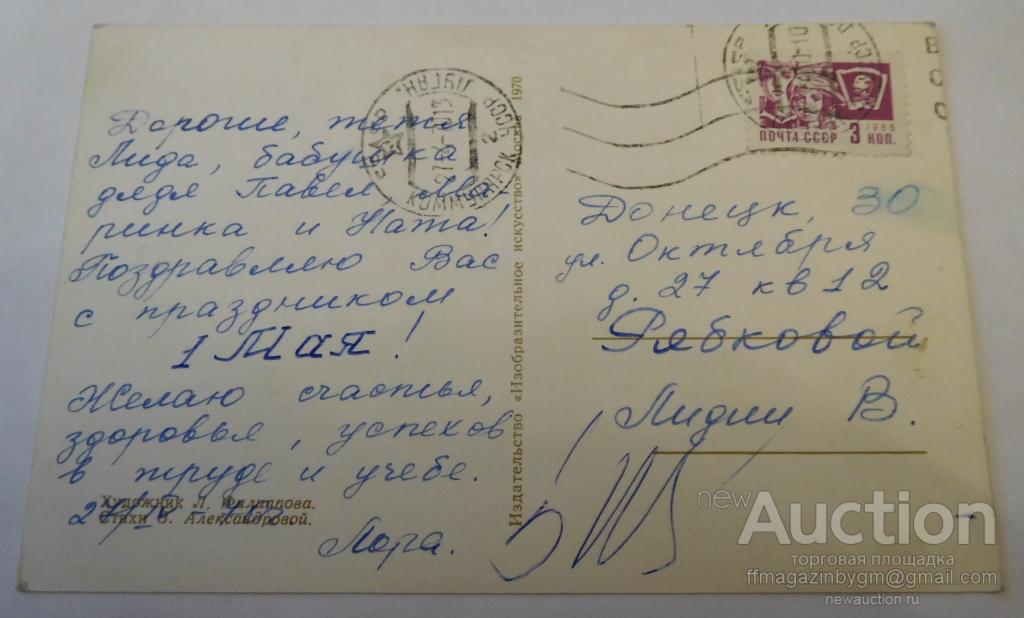 Дорогие, тетя
Лида, бабушка
дядя Павел, Ма-
ринка и Ната!
Поздравляю Вас
с праздником
1 Мая!
Желаю счастья,
здоровья, успехов
в труде и учебе.
Художник Л. Филиппова.
Стихи З. Александровой.
Лора.
Издательство «Изобразительное искусство» Москва 1970
КОММУНАРСК
ПОЧТА СССР 3 КОП.
1966
Донецк, 30
ул. Октября
д. 27 кв 12
Рябковой
Лидии В.
newAuction
торговая площадка
ffmagazinbygm@gmail.com
newauction.ru